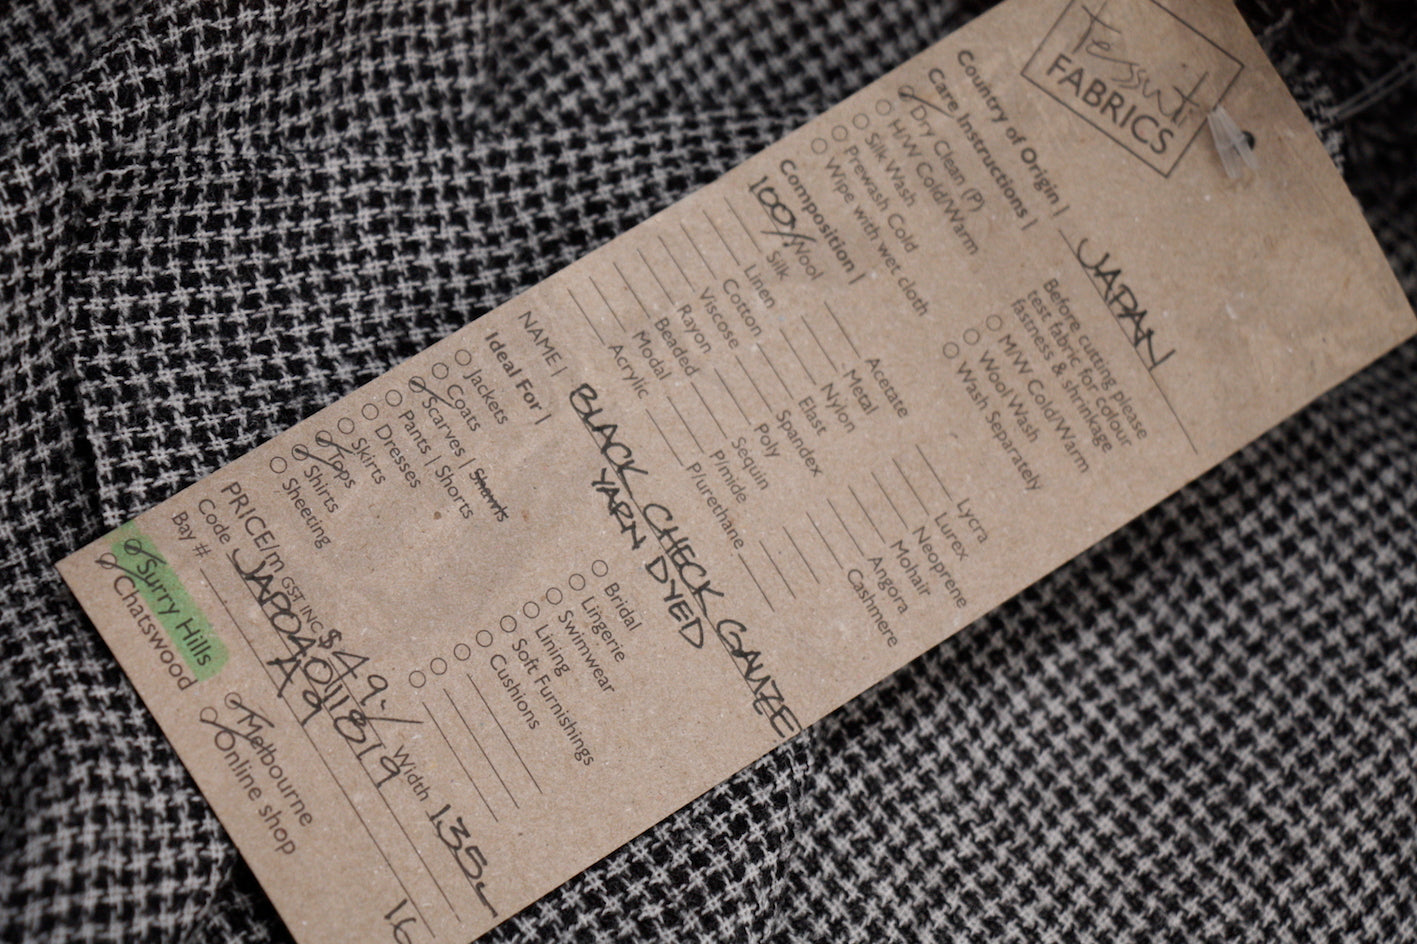 Tessuti
FABRICS
Country of Origin | JAPAN
Care Instructions |
Dry Clean (P)
H/W Cold/Warm
Silk Wash
Prewash Cold
Wipe with wet cloth
Before cutting please
test fabric for colour
fastness & shrinkage
M/W Cold/Warm
Wool Wash
Wash Separately
Composition |
100% Wool
Silk
Linen
Cotton
Viscose
Rayon
Beaded
Modal
Acrylic
Acetate
Metal
Nylon
Elast
Spandex
Poly
Sequin
P/mide
P/urethane
Lycra
Lurex
Neoprene
Mohair
Angora
Cashmere
NAME | BLACK CHECK GAUZE
YARN DYED
Ideal For |
Jackets
Coats
Scarves | Shawls
Pants | Shorts
Dresses
Skirts
Tops
Shirts
Sheeting
Bridal
Lingerie
Swimwear
Lining
Soft Furnishings
Cushions
PRICE/m GST INC $49.- Width 135
Code JAP040111819
Bay # A9
16
Surry Hills
Chatswood
Melbourne
Online shop